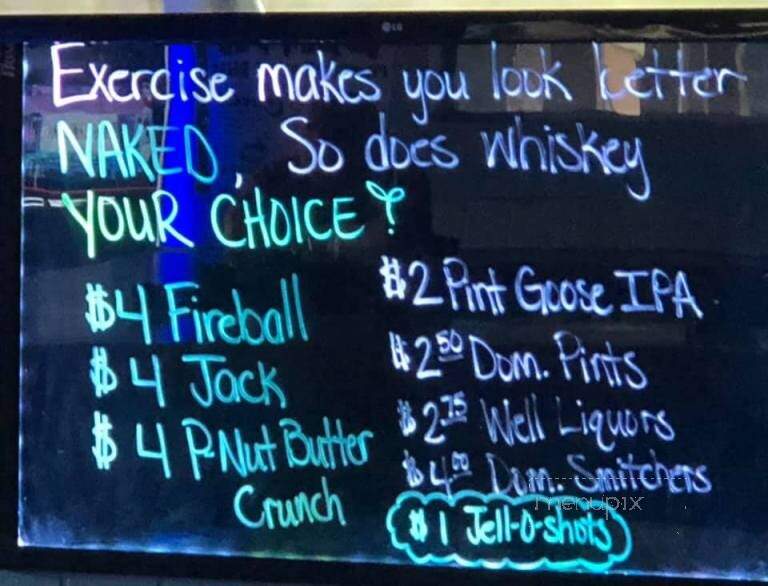 LG
Exercise makes you look better
NAKED, So does whiskey
YOUR CHOICE?
$4 Fireball
$4 Jack
$4 P-Nut Butter
Crunch
$2 Pint Goose IPA
$2.50 Dom. Pints
$2.75 Well Liquors
$4.00 Dom. Smitchers
$1 Jell-O-shots
menupix